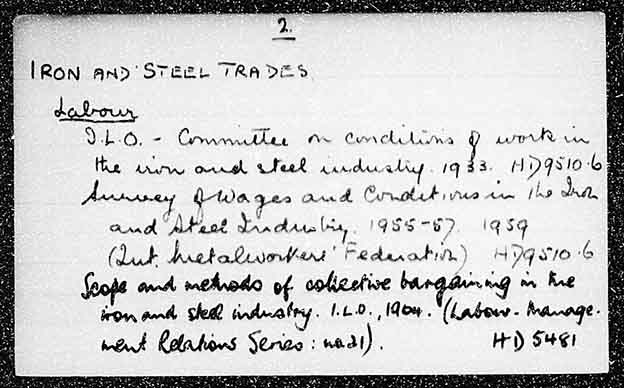 2.
IRON AND STEEL TRADES
Labour
I.L.O. - Committee on conditions of work in
the iron and steel industry. 1933. HD9510.6
Survey of Wages and Conditions in the Iron
and Steel Industry. 1955-57. 1959
(Int. Metalworkers' Federation) HD9510.6
Scope and methods of collective bargaining in the
iron and steel industry. I.L.O., (Labour-Manage-
ment Relations Series: no. 21). HD 5481